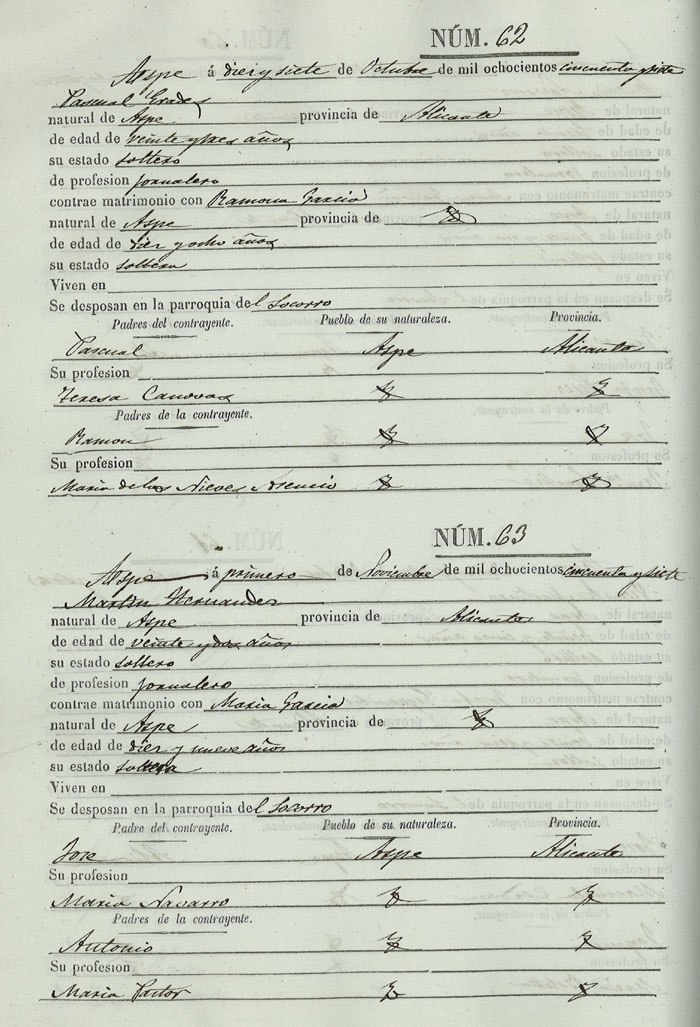 NÚM. 62
Aspe á diez y siete de Octubre de mil ochocientos cincuenta y siete
Pascual
natural de Aspe provincia de Alicante
de edad de veinte y tres años
su estado soltero
de profesion jornalero
contrae matrimonio con Ramona Garcia
natural de Aspe provincia de
de edad de diez y ocho años
su estado soltera
Viven en
Se desposan en la parroquia del Socorro
Padres del contrayente. Pueblo de su naturaleza. Provincia.
Pascual Aspe Alicante
Su profesion
Teresa Canovas
Padres de la contrayente.
Ramon
Su profesion
Maria de las Nieves Asencio
NÚM. 63
Aspe á primero de Noviembre de mil ochocientos cincuenta y siete
Martin Hernandez
natural de Aspe provincia de Alicante
de edad de veinte y dos años
su estado soltero
de profesion jornalero
contrae matrimonio con Maria Garcia
natural de Aspe provincia de
de edad de diez y nueve años
su estado soltera
Viven en
Se desposan en la parroquia del Socorro
Padre del contrayente. Pueblo de su naturaleza. Provincia.
Jose Aspe Alicante
Su profesion
Maria Navarro
Padres de la contrayente.
Antonio
Su profesion
Maria Pastor